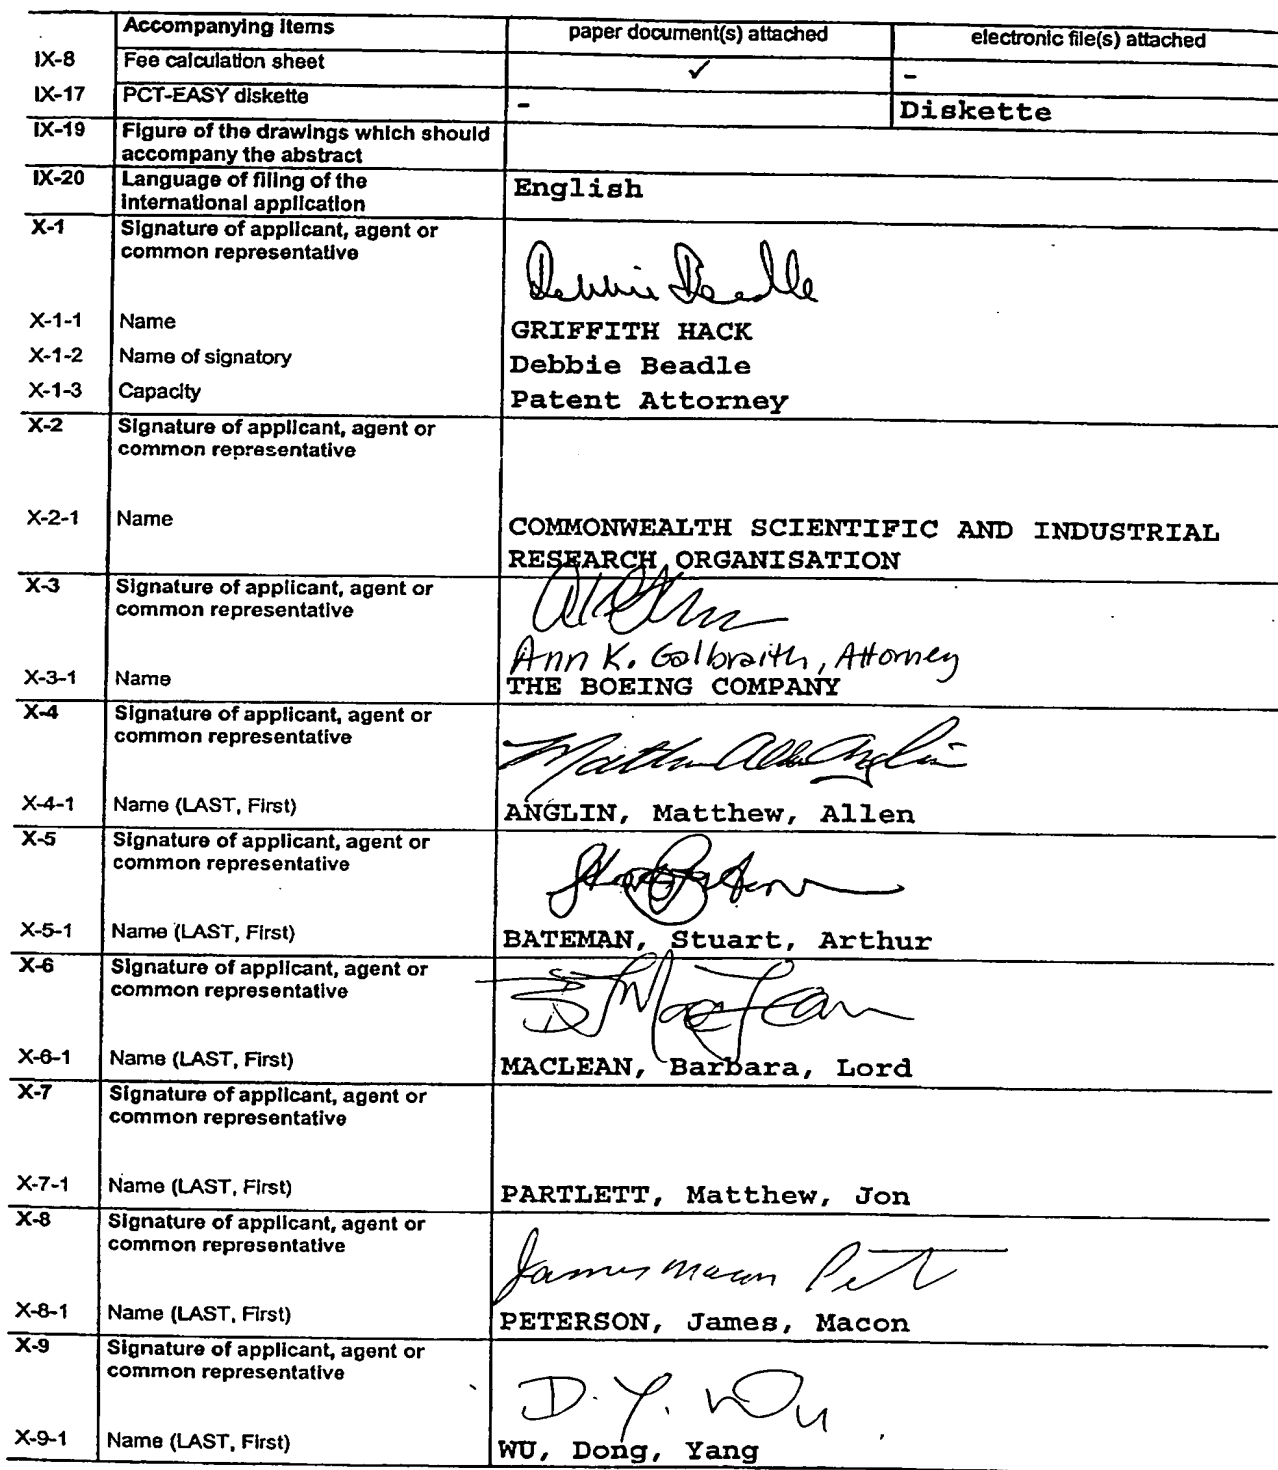 Accompanying Items paper document(s) attached electronic file(s) attached
IX-8 Fee calculation sheet ✓ -
IX-17 PCT-EASY diskette - Diskette
IX-19 Figure of the drawings which should
accompany the abstract
IX-20 Language of filing of the
international application English
X-1 Signature of applicant, agent or
common representative
Debbie Beadle
X-1-1 Name GRIFFITH HACK
X-1-2 Name of signatory Debbie Beadle
X-1-3 Capacity Patent Attorney
X-2 Signature of applicant, agent or
common representative
X-2-1 Name COMMONWEALTH SCIENTIFIC AND INDUSTRIAL
RESEARCH ORGANISATION
X-3 Signature of applicant, agent or
common representative
Ann K. Galbraith, Attorney
X-3-1 Name THE BOEING COMPANY
X-4 Signature of applicant, agent or
common representative
Matthew Allen Anglin
X-4-1 Name (LAST, First) ANGLIN, Matthew, Allen
X-5 Signature of applicant, agent or
common representative
X-5-1 Name (LAST, First) BATEMAN, Stuart, Arthur
X-6 Signature of applicant, agent or
common representative
X-6-1 Name (LAST, First) MACLEAN, Barbara, Lord
X-7 Signature of applicant, agent or
common representative
X-7-1 Name (LAST, First) PARTLETT, Matthew, Jon
X-8 Signature of applicant, agent or
common representative
James Macon
X-8-1 Name (LAST, First) PETERSON, James, Macon
X-9 Signature of applicant, agent or
common representative
D. Y. Wu
X-9-1 Name (LAST, First) WU, Dong, Yang